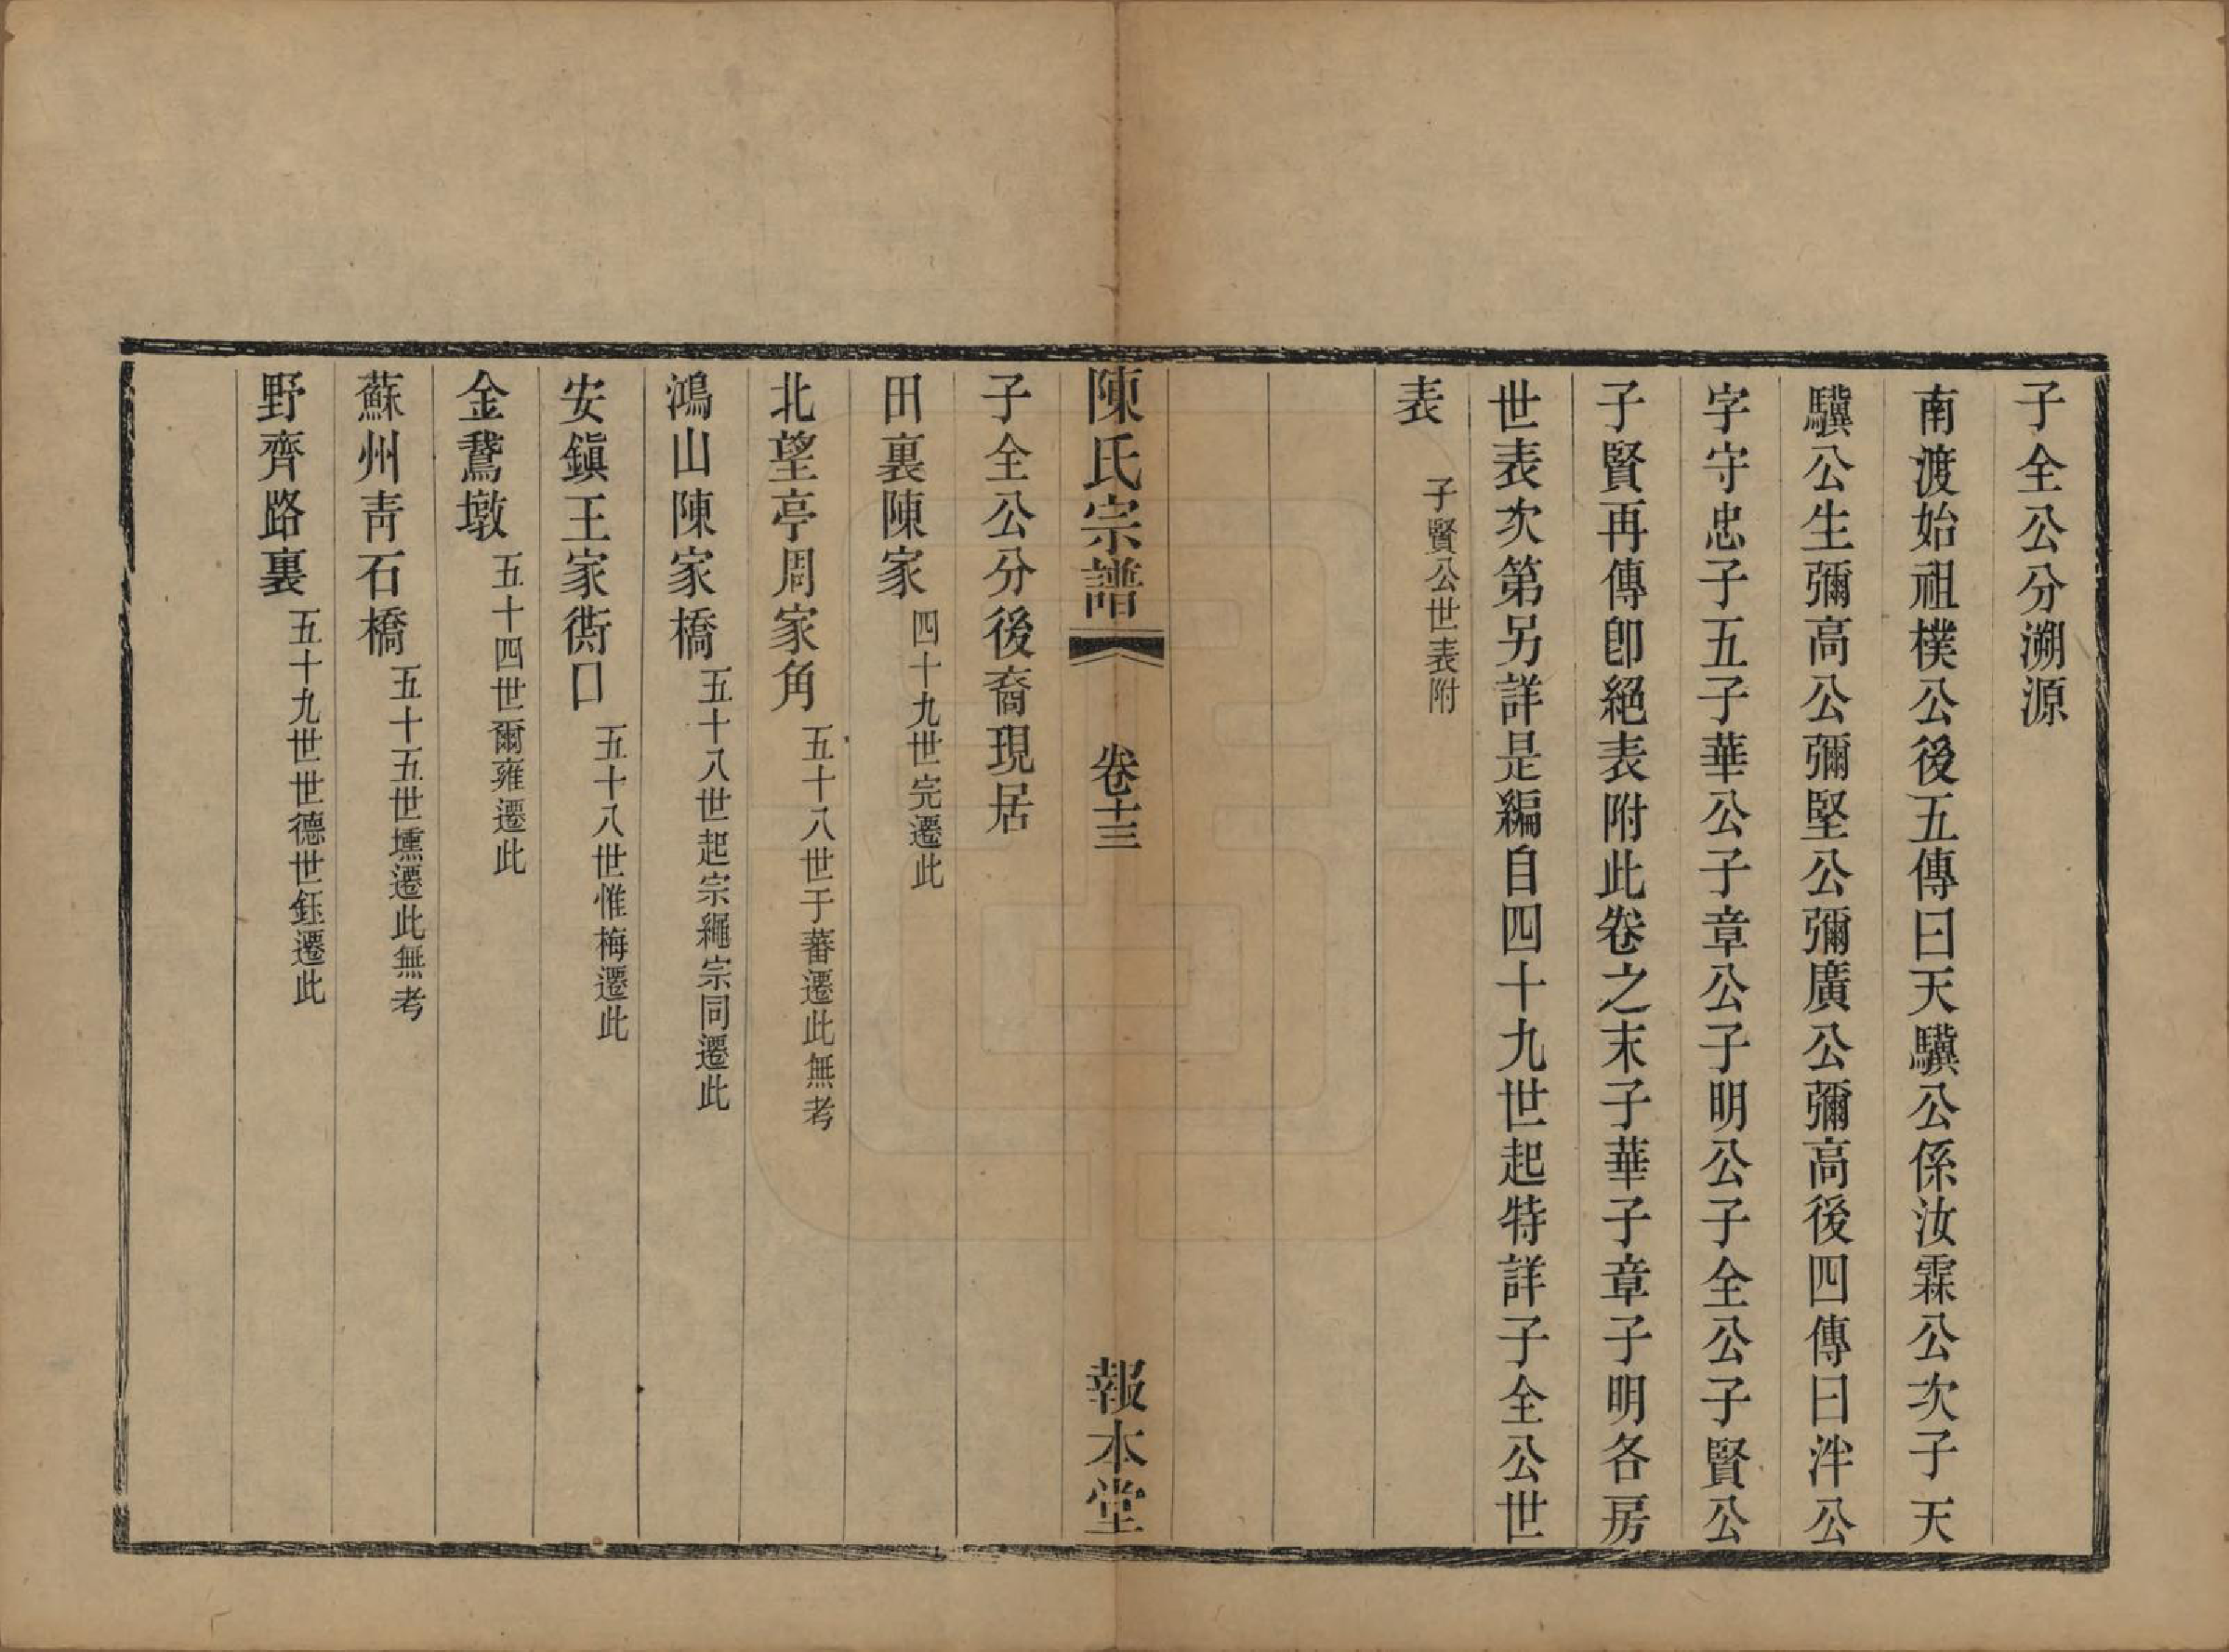 子全公分溯源
南渡始祖樸公後五傳曰天驥公係汝霖公次子天
驥公生彌高公彌堅公彌廣公彌高後四傳曰泮公
字守忠子五子華公子章公子明公子全公子賢公
子賢再傳卽絕表附此卷之末子華子章子明各房
世表次第另詳是編自四十九世起特詳子全公世
表 子賢公世表附
陳氏宗譜 卷十三 報本堂
子全公分後裔現居
田裏陳家 四十九世完遷此
北望亭周家角 五十八世于蕃遷此無考
鴻山陳家橋 五十八世起宗繩宗同遷此
安鎭王家衖口 五十八世惟梅遷此
金鵞墩 五十四世爾雍遷此
蘇州靑石橋 五十五世壎遷此無考
野齊路裏 五十九世世德世鈺遷此